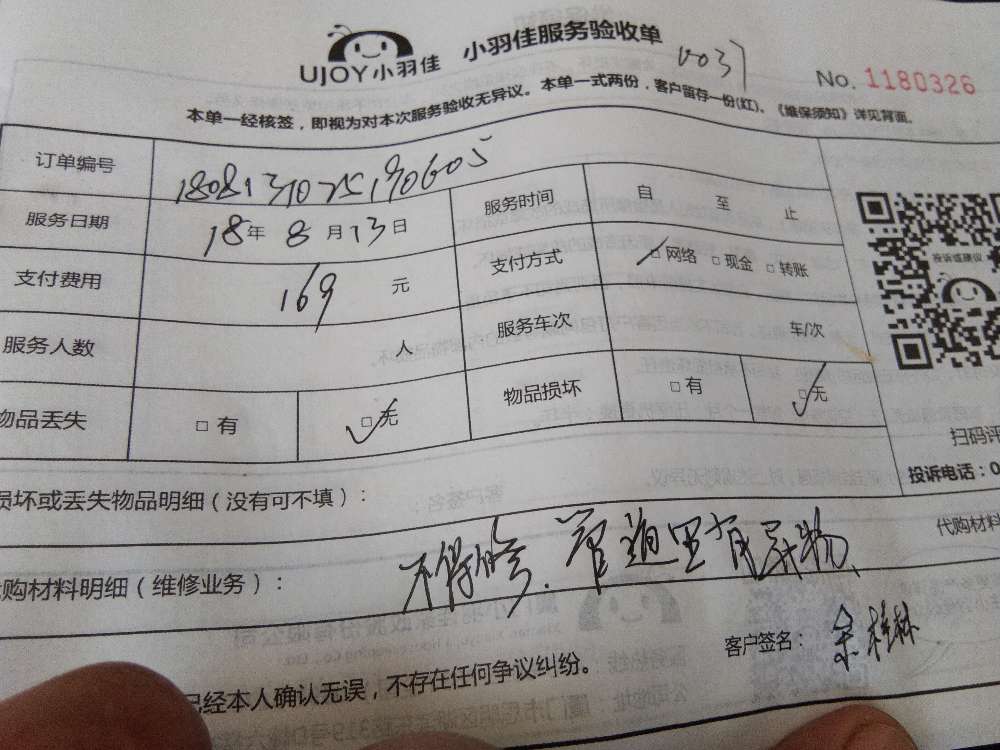 UJOY小羽佳 小羽佳服务验收单 0037
No. 1180326
本单一经核签，即视为对本次服务验收无异议。本单一式两份，客户留存一份(红)、《维保须知》详见背面。
订单编号
服务日期 18年8月13日 服务时间 自 至 止
支付费用 169 元 支付方式 □网络 □现金 □转账
服务人数 人 服务车次 车/次
物品丢失 □有 □无 物品损坏 □有 □无
投诉或建议
扫码评
投诉电话：0
损坏或丢失物品明细（没有可不填）：
代购材料
代购材料明细（维修业务）： 管道里有异物、
客户签名： 余桂林
已经本人确认无误，不存在任何争议纠纷。